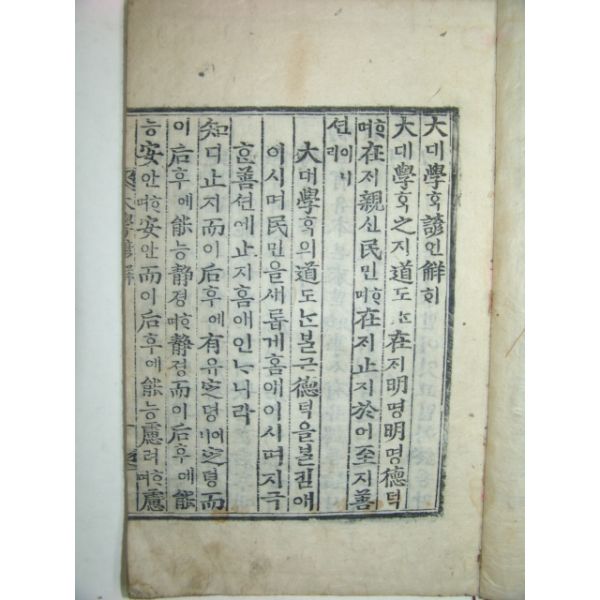 大대學ᄒᆞᆨ諺언解ᄒᆡ
大대學ᄒᆞᆨ之지道도ᄂᆞᆫ在ᄌᆡ明명明명德덕
ᄒᆞ며在ᄌᆡ親신民민ᄒᆞ며在ᄌᆡ止지於어至지善
션이니라
大대學ᄒᆞᆨ의道도ᄂᆞᆫᄇᆞᆯ근德덕을ᄇᆞᆯ킴애
이시며民민을새롭게홈애이시며지극
ᄒᆞᆫ善션에止지홈애인ᄂᆞ니라
知디止지而이后후에有유定뎡이니定뎡而
이后후에能능静졍ᄒᆞ며静졍而이后후에能
능安안ᄒᆞ며安안而이后후에能능慮려ᄒᆞ며慮
大學諺解